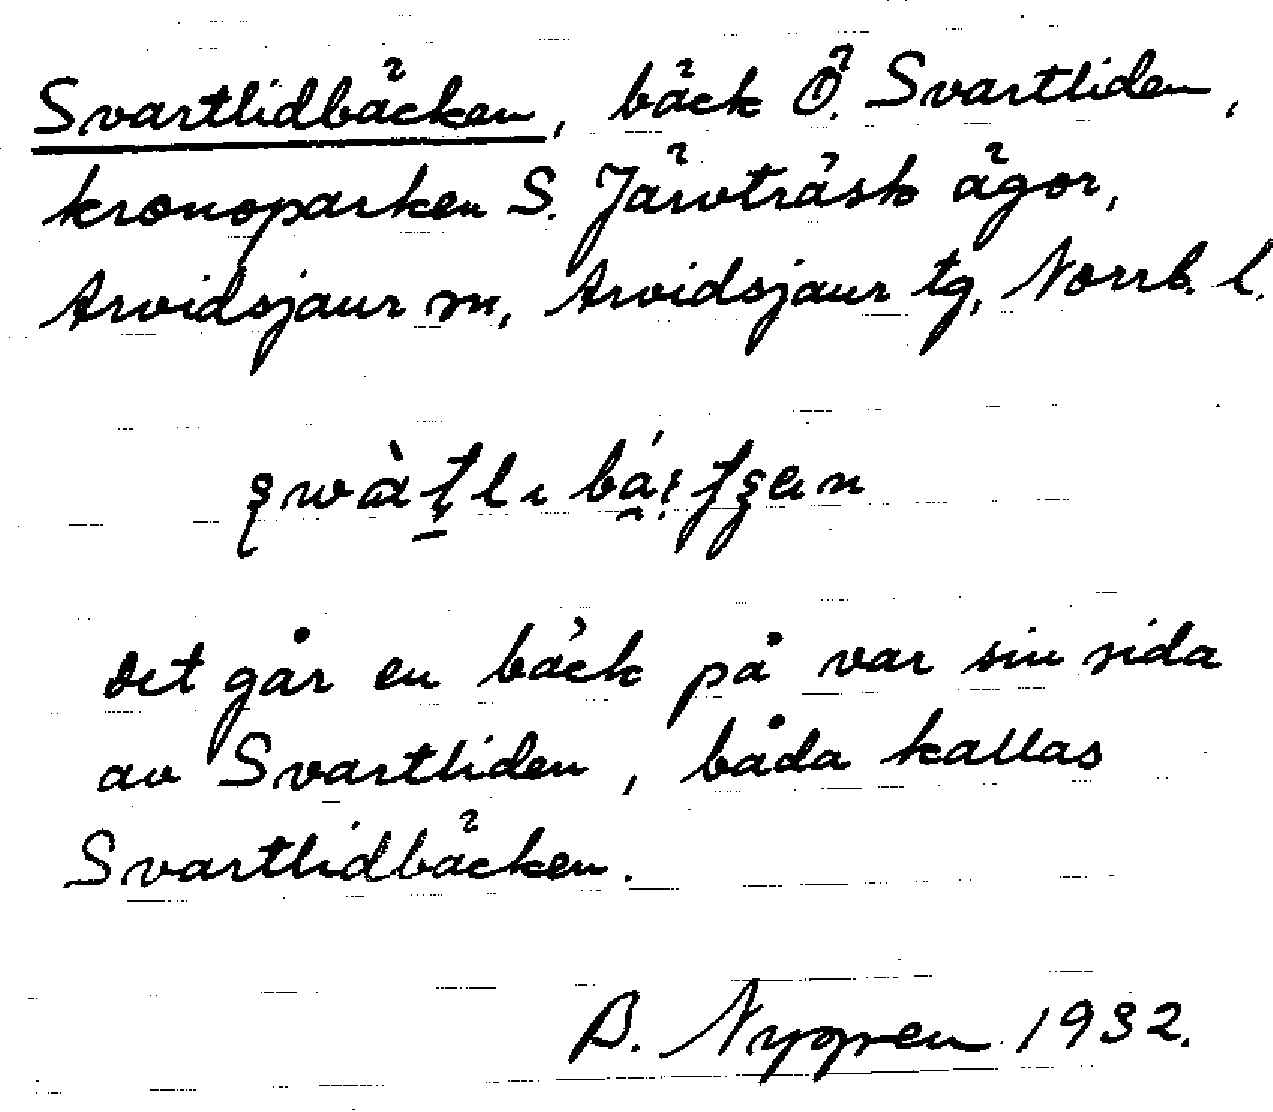 Svartlidbäcken, bäck Ö. Svartliden,
kronoparken S. Järvträsk ägor,
Arvidsjaur sn, Arvidsjaur tg, Norrb. l.
Det går en bäck på var sin sida
av Svartliden, båda kallas
Svartlidbäcken.
B. Nygren 1932.